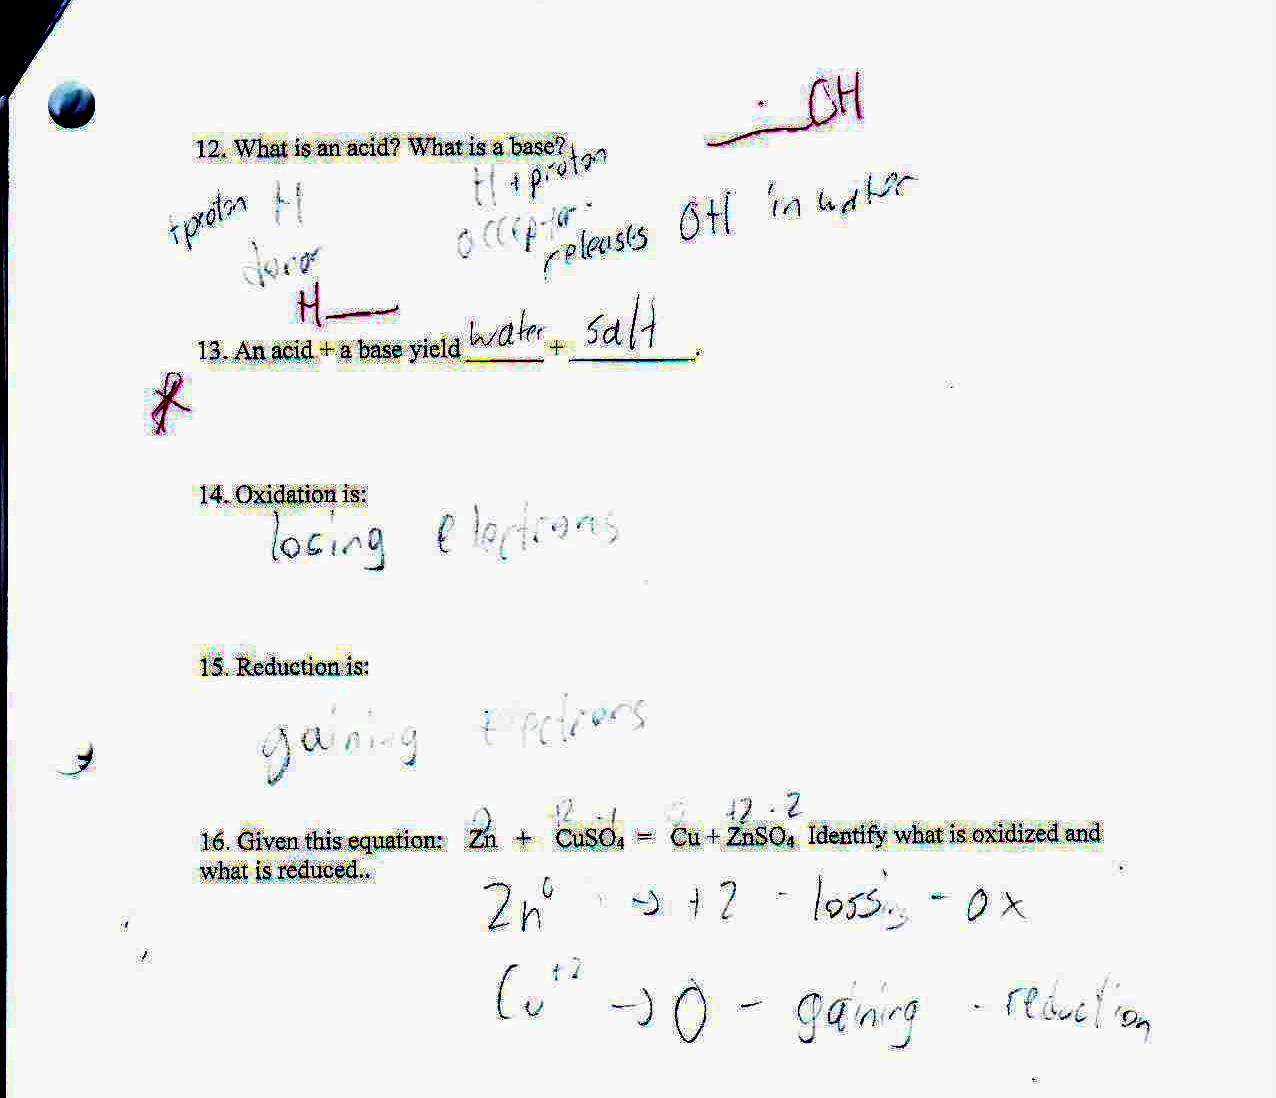 OH
12. What is an acid? What is a base?
+proton H
donor
H + proton
acceptor
releases OH in water
H
13. An acid + a base yield water + salt.
14. Oxidation is:
losing electrons
15. Reduction is:
gaining electrons
0 +2 +2 -2
16. Given this equation: Zn + CuSO4 = Cu + ZnSO4 Identify what is oxidized and
what is reduced..
Zn⁰ → +2 - lossing - ox
Cu⁺² → 0 - gaining - reduction